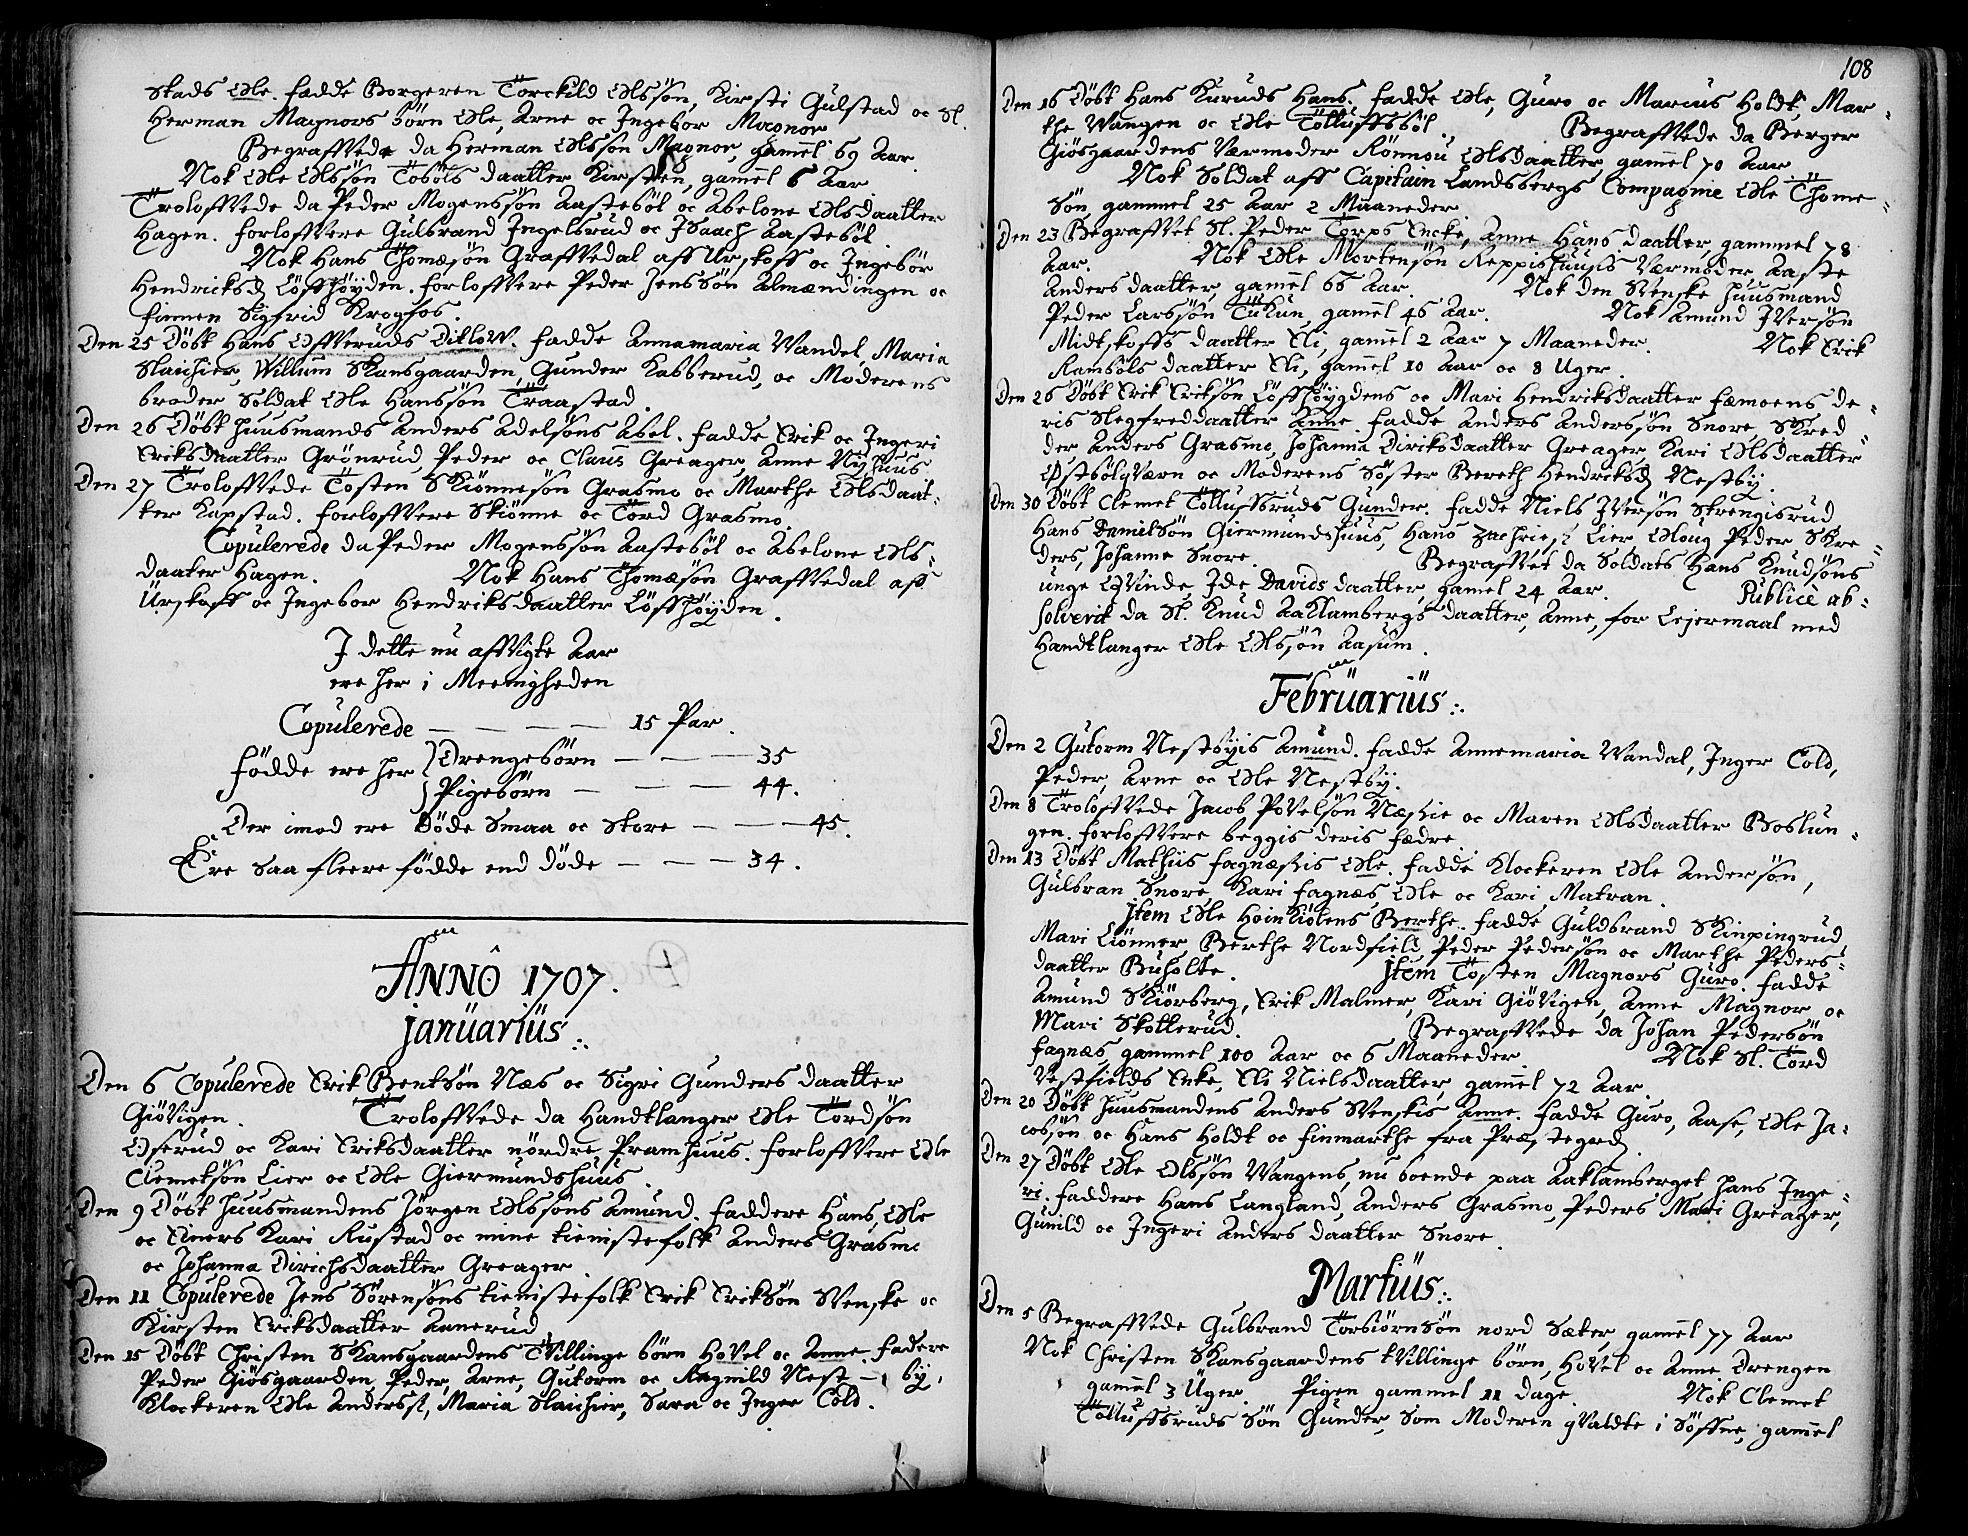 Stads Ole. Fadde Borgeren Torckild Olssön, Kirsti Gulstad oc Sl.
Herman Magnors börn Ole, Arne oc Ingebor Magnor
Begraffvede da Herman Olssön Magnor, gamel 69 Aar
Nok Ole Olssön Toböls daatter Kirsten, gamel 6 Aar.
Troloffvede da Peder Mogenssön Aasteböl oc Abelone Olsdaatter
Hagen. Forloffvere Gulbrand Ingelsrud oc Isaach Aasteböl
Nok Hans Thomæsön Graffvedal aff Urskoff oc Ingebör
Hendricksd Löffhöyden. Forloffvere Peder Jenssön Almændingen oc
finnen Sigfrid Krogfos.
Den 25 Döbt Hans Offveruds Ditlow. Fadde Annamaria Wandel, Maria
Slaichier, Willum Skansgaarden, Gunder Kabberud, oc Moderens
broder Soldat Ole Hanssön Traastad.
Den 26 Döbt huusmands Anders Adelsöns Abel. Fadde Erik oc Ingeri
Eriksdaatter Grönrud, Peder oc Claus Greager, Anne Nyhuus
Den 27 Troloffvede Tosten Skiönnesön Grasmo oc Marthe Olsdaat-
ter Kapstad. Forloffvere Skiönne oc Tord Grasmo.
Copulerede da Peder Mogenssön Aasteböl oc Abelone Ols-
daater Hagen. Nok Hans Thomæsön Graffvedal aff
Urskoff oc Ingebor Hendriksdaatter Löffhöyden.
I dette nu affvigte Aar
ere her i Meenigheden
Copulerede — — — — 15 Par.
Födde ere her } Drengebörn — — — 35
} Pigebörn — — — 44.
Der imod ere Döde Smaa oc Store — — — 45.
Ere saa fleere födde end döde — — — 34.
ANNO 1707.
Januarius.
Den 6 Copulerede Erik Bentsön Næs oc Sigri Gunders daatter
Giövigen. Troloffvede da Handtlanger Ole Tordsön
Oserud oc Kari Eriksdaatter nördre Pramhuus. Forloffvere Ole
Clemetsön Lier oc Ole Giermundshuus.
Den 9 Döbt huusmandens Jörgen Olssöns Amund. Faddere Hans, Ole
oc Einers Kari Rustad oc mine tienistefolk Anders Grasmo
oc Johanna Dirichsdaatter Greager
Den 11 Copulerede Jens Sörensöns tienistefolk Erik Eriksön Svenske oc
Kirsten Eriksdaatter Annerud
Den 15 Döbt Christen Skansgaardens Tvillinge börn Hovel oc Anne. Fadere
Peder Giösgaarden, Peder, Arne, Gutorm oc Ragnild Nest-by,
Klockeren Ole Anderss, Maria Slaichier, Sara oc Inger Cold.
108
Den 16 Döbt Hans Kuruds Hans. Fadde Ole, Guro oc Marius Holdt, Mar-
the Wangen oc Ole Tölluffsböl. Begraffvede da Berger
Giösgaardens Værmoder Rönnou Olsdaatter, gamel 70 Aar
Nok Soldat aff Capitain Landsbergs Compagnie Ole Thome-
sön, gammel 25 Aar 2 Maaneder
Den 23 Begraffvet Sl. Peder Torps Encke, Anne Hans daatter, gammel 78
Aar. Nok Ole Mortensön Reppishuusis Værmoder, Aaste
Anders daatter, gamel 66 Aar. Nok den Svenske huusmand
Peder Larssön Tukun, gamel 46 Aar. Nok Amund Iversön
Midtskoffs daatter Eli, gamel 2 Aar 7 Maaneder. Nok Erik
Ramböls daatter Eli, gamel 10 Aar oc 8 Uger.
Den 26 Döbt Erik Eriksön Löffhöygdens oc Mari Hendriksdaatter Fæmoens de-
ris Slegfreddaatter Anne. Fadde Anders Anderssön Snore, Skred
der Anders Grasmo, Johanna Diriksdaatter Greager, Kari Olsdaatter
Ostbölqværn oc Moderens Söster Bereth Hendricksd Nestby
Den 30 Döbt Clemet Tölluffsruds Gunder. Fadde Niels Iversön Strengisrud
Hans Danielsön Giermundshuus, Hans Zachries Lier, Oloug Peder Skre-
ders, Johanne Snore. Begraffvet da Soldats Hans Knudsöns
unge Qvinde, Ide Davids daatter, gamel 24 Aar. Publicè ab-
solverit da Sl. Knud Aaklambergs daatter, Anne, for Lejermaal med
Handtlanger Ole Olssön Aasum.
Februarius.
Den 2 Gutorm Nestbyis Amund. Fadde Annemaria Wandal, Inger Cold,
Peder, Arne oc Ole Nestby.
Den 8 Troloffvede Jacob Povelsön Næssie oc Maren Olsdaatter Boslun-
gen. Forloffvere beggis deris fædre
Den 13 Döbt Mathiis Fagnæssis Ole. Fadde Klockeren Ole Andersön,
Gulbran Snore, Kari Fagnæs, Ole oc Kari Matran.
Item Ole Hoinkiölens Berthe. Fadde Guldbrand Skinpingrud
Mari Liönner, Berthe Nordfield, Peder Pedersön oc Marthe Peders-
daatter Buholte. Item Tosten Magnors Guro. Fadde
Amund Skiörberg, Erik Malmer, Kari Giövigen, Anne Magnor oc
Mari Skotterud. Begraffvede da Johan Pedersön
Fagnæs, gammel 100 Aar oc 6 Maaneder. Nok Sl. Tord
Vestfields Enke, Eli Nielsdaatter, gamel 72 Aar.
Den 20 Döbt huusmandens Anders Svenskis Anne. Fadde Guro, Aase, Ole Ja-
cobsön oc Hans Holdt oc Finmarthe fra Præstegrd
Den 27 Döbt Ole Olssön Wangens, nu boende paa Aaklamberget hans Inge-
ri. Faddere Hans Langland, Anders Grasmo, Peders Mari Greager,
Gunild oc Ingeri Anders daatter Snore.
Martius.
Den 5 Begraffvede Gulbrand Torbiörnsön nord Sæter, gamel 77 Aar
Nok Christen Skansgaardens tvillinge börn, Hovel oc Anne. Drengen
gamel 3 Uger. Pigen gammel 11 dage. Nok Clemet
Tölluffsruds Sön Gunder, som Moderen qvaldte i söffne, gamel